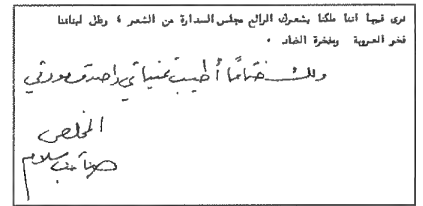 نرى فيها اننا ملكنا بشعرك الرائع مجلس الصدارة من الشعر ، وظل لبناننا
فخر العروبة ومفخرة الضاد .
ولك ختامًا أطيب تمنياتي وأصدق مودتي
المخلص
صائب سلام